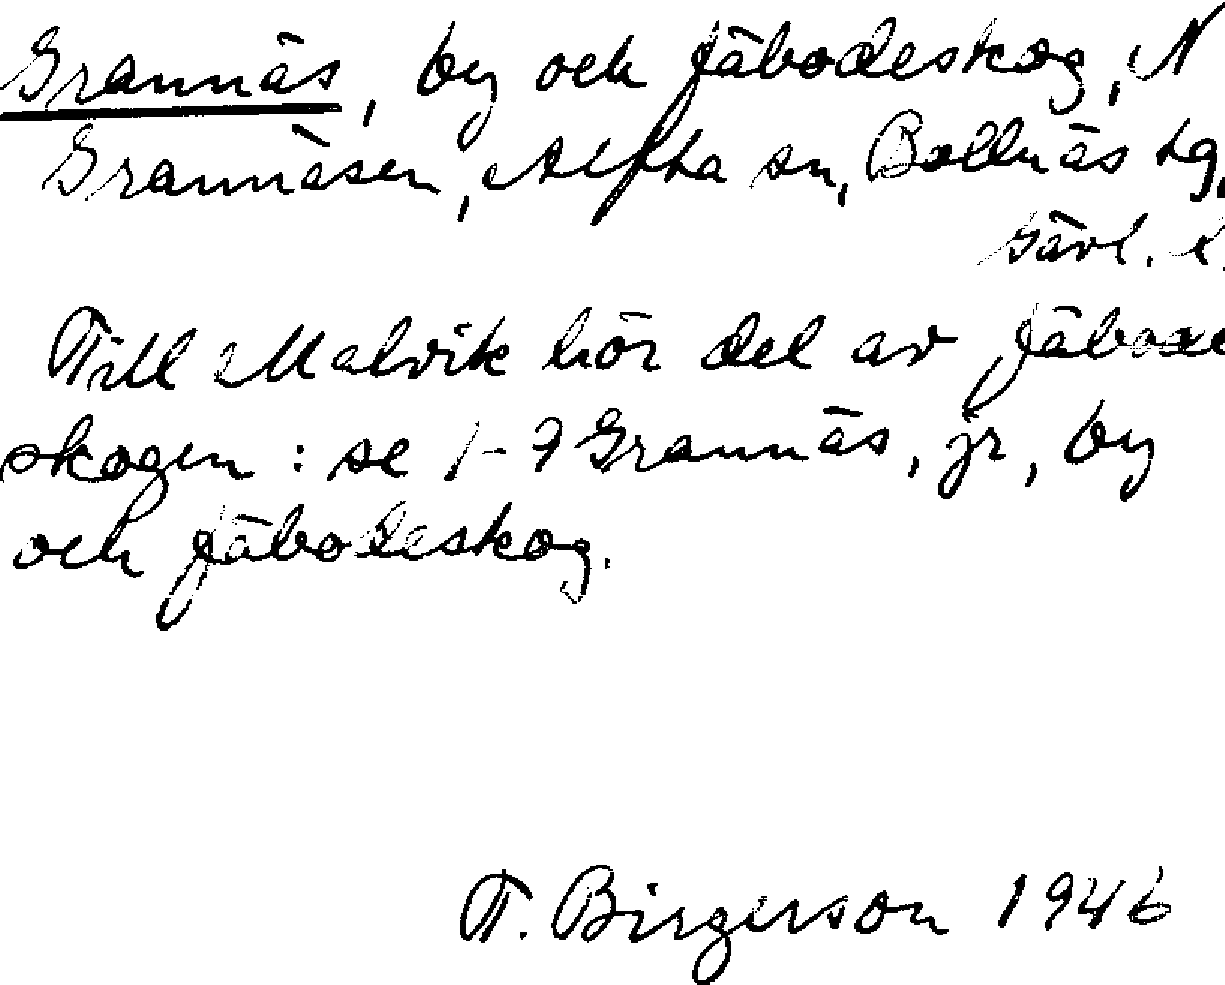 Grannäs, by och fäbodeskog, N
Grannäsen, Alfta sn, Bollnäs tg,
Gävl. l.
Till Malvik hör del av fäbode
skogen : se 1-7 Grannäs, jr, by
och fäbodeskog.
T. Birgerson 1946